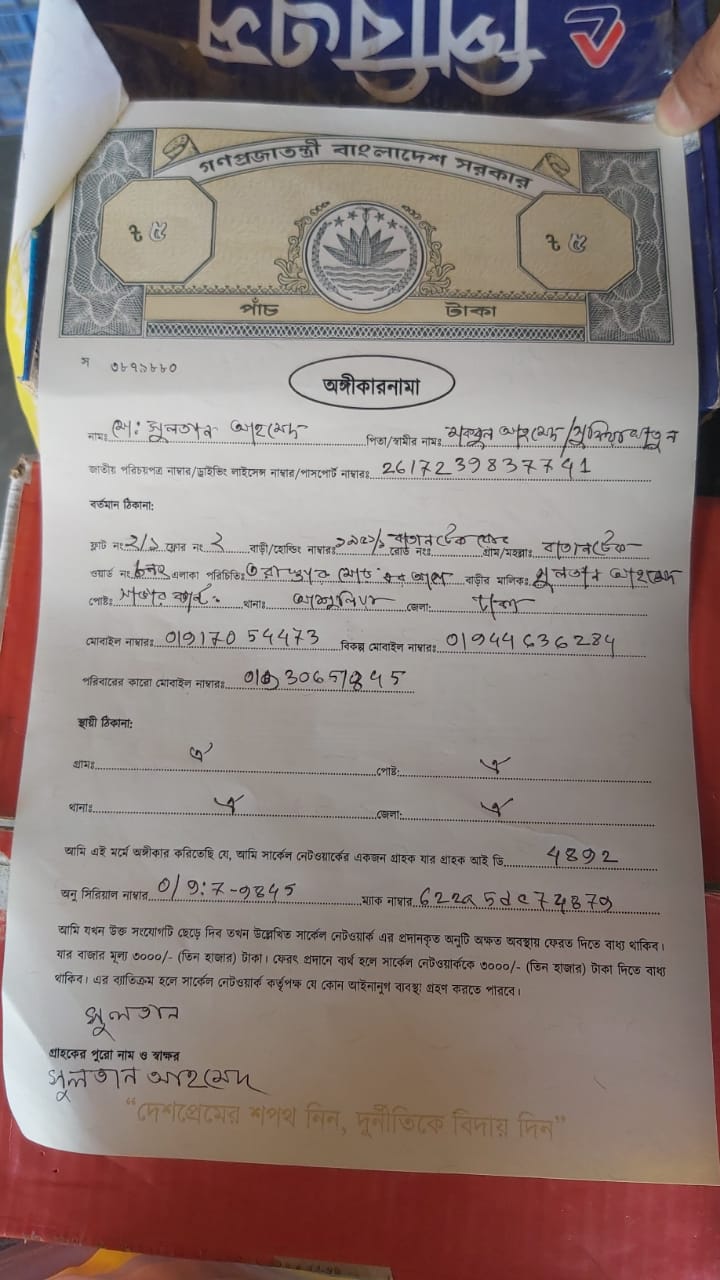 গণপ্রজাতন্ত্রী বাংলাদেশ সরকার
৳ ৫ ৳ ৫
পাঁচ টাকা
স ৩৮৭৯৮৮০
অঙ্গীকারনামা
নামঃ মো: সুলতান আহমেদ পিতা/স্বামীর নামঃ আহমেদ/
জাতীয় পরিচয়পত্র নাম্বার/ড্রাইভিং লাইসেন্স নাম্বার/পাসপোর্ট নাম্বারঃ 2617239837741
বর্তমান ঠিকানা:
ফ্লাট নং ২/১ ফ্লোর নং ২ বাড়ী/হোল্ডিং নাম্বারঃ রোড নংঃ গ্রাম/মহল্লাঃ
ওয়ার্ড নং এলাকা পরিচিতিঃ বাড়ীর মালিকঃ সুলতান আহমেদ
পোষ্টঃ থানাঃ আশুলিয়া জেলা: ঢাকা
মোবাইল নাম্বারঃ 01917054473 বিকল্প মোবাইল নাম্বারঃ 01944636284
পরিবারের কারো মোবাইল নাম্বারঃ
স্থায়ী ঠিকানা:
গ্রামঃ ঐ পোষ্ট: ঐ
থানাঃ ঐ জেলা: ঐ
আমি এই মর্মে অঙ্গীকার করিতেছি যে, আমি সার্কেল নেটওয়ার্কের একজন গ্রাহক যার গ্রাহক আই ডি 4892
অনু সিরিয়াল নাম্বার ম্যাক নাম্বার
আমি যখন উক্ত সংযোগটি ছেড়ে দিব তখন উল্লেখিত সার্কেল নেটওয়ার্ক এর প্রদানকৃত অনুটি অক্ষত অবস্থায় ফেরত দিতে বাধ্য থাকিব।
যার বাজার মূল্য ৩০০০/- (তিন হাজার) টাকা। ফেরৎ প্রদানে ব্যর্থ হলে সার্কেল নেটওয়ার্ককে ৩০০০/- (তিন হাজার) টাকা দিতে বাধ্য
থাকিব। এর ব্যতিক্রম হলে সার্কেল নেটওয়ার্ক কর্তৃপক্ষ যে কোন আইনানুগ ব্যবস্থা গ্রহণ করতে পারবে।
সুলতান
গ্রাহকের পুরো নাম ও স্বাক্ষর
সুলতান আহমেদ
“দেশপ্রেমের শপথ নিন, দুর্নীতিকে বিদায় দিন”